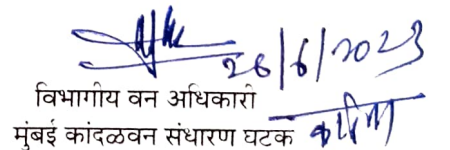 26/6/2023
विभागीय वन अधिकारी
मुंबई कांदळवन संधारण घटक